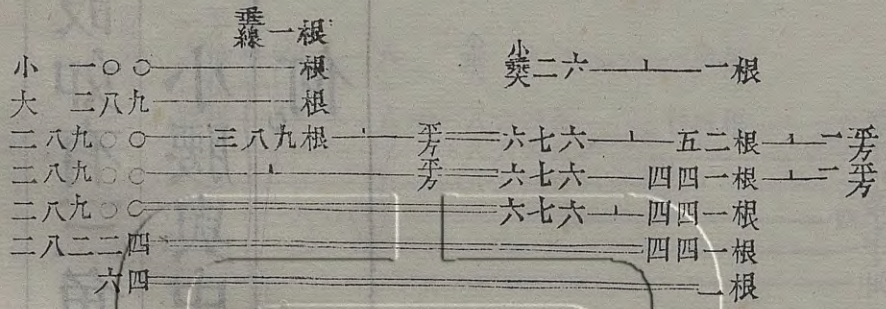 垂線一根
小 一〇〇——根 小 二六—⊥—一根
大 二八九——根
二八九〇〇—三八九根—⊥—平方══六七六—⊥—五二根—⊥—一平方
二八九〇〇——⊥——平方══六七六—⊥—四四一根—⊥—一平方
二八九〇〇══六七六—⊥—四四一根
二八二二四══四四一根
六四══一根